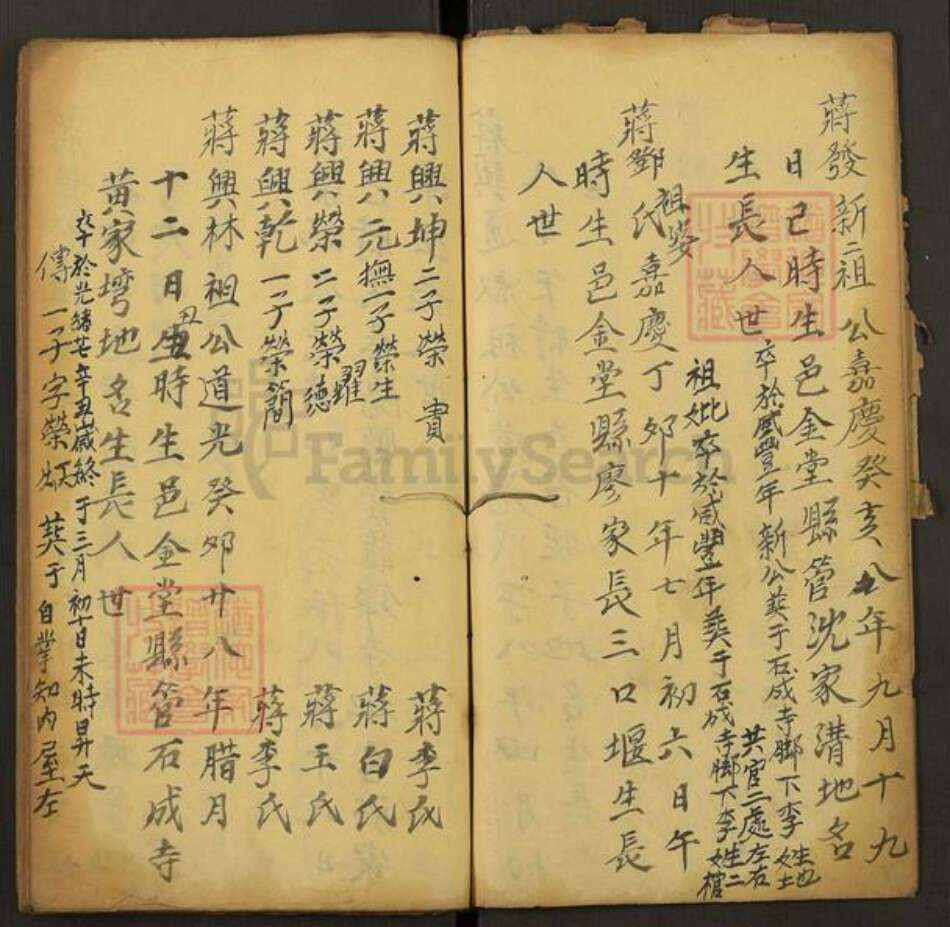 蔣發新二祖公嘉慶癸亥八年九月十九
日巳時生邑金堂縣管沈家潸地名
生長人世
卒於咸豐年新公葬于石成寺腳下李姓地
共官二處左右
祖妣卒於咸豐年葬于石成寺腳下李姓二棺
蔣鄧氏祖婆嘉慶丁卯十年七月初六日午
時生邑金堂縣廖家長三口堰生長
人世
蔣興坤二子榮貴 蔣李氏
蔣興元撫一子榮生 蔣白氏
蔣興榮二子榮德 榮耀 蔣王氏
蔣興乾一子榮簡 蔣李氏
蔣興林祖公道光癸卯廿八年腊月
十二月丑時生邑金堂縣管石成寺
黃家塆地名生長人世
於光緒辛丑歲終于三月初十日未時昇天
傳一子字榮 葬于自業知內屋左
FamilySearch